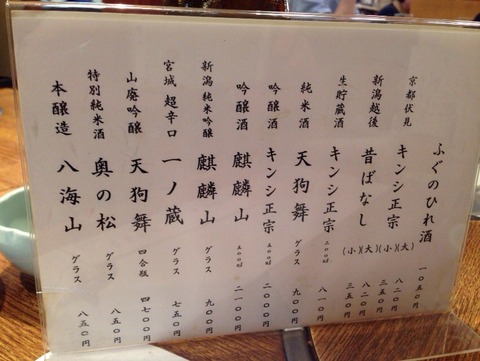 ふぐのひれ酒 一〇五〇円
京都伏見 キンシ正宗 (大) 八二〇円
(小) 三五〇円
新潟越後 昔ばなし (大) 八二〇円
(小) 三五〇円
生貯蔵酒 キンシ正宗 八一〇円
純米酒 天狗舞 グラス 九〇〇円
吟醸酒 キンシ正宗 二〇〇〇円
吟醸酒 麒麟山 二一〇〇円
新潟純米吟醸 麒麟山 グラス 九〇〇円
宮城 超辛口 一ノ蔵 グラス 七五〇円
山廃吟醸 天狗舞 四合瓶 四七〇〇円
特別純米酒 奥の松 グラス 八五〇円
本醸造 八海山 グラス 八五〇円